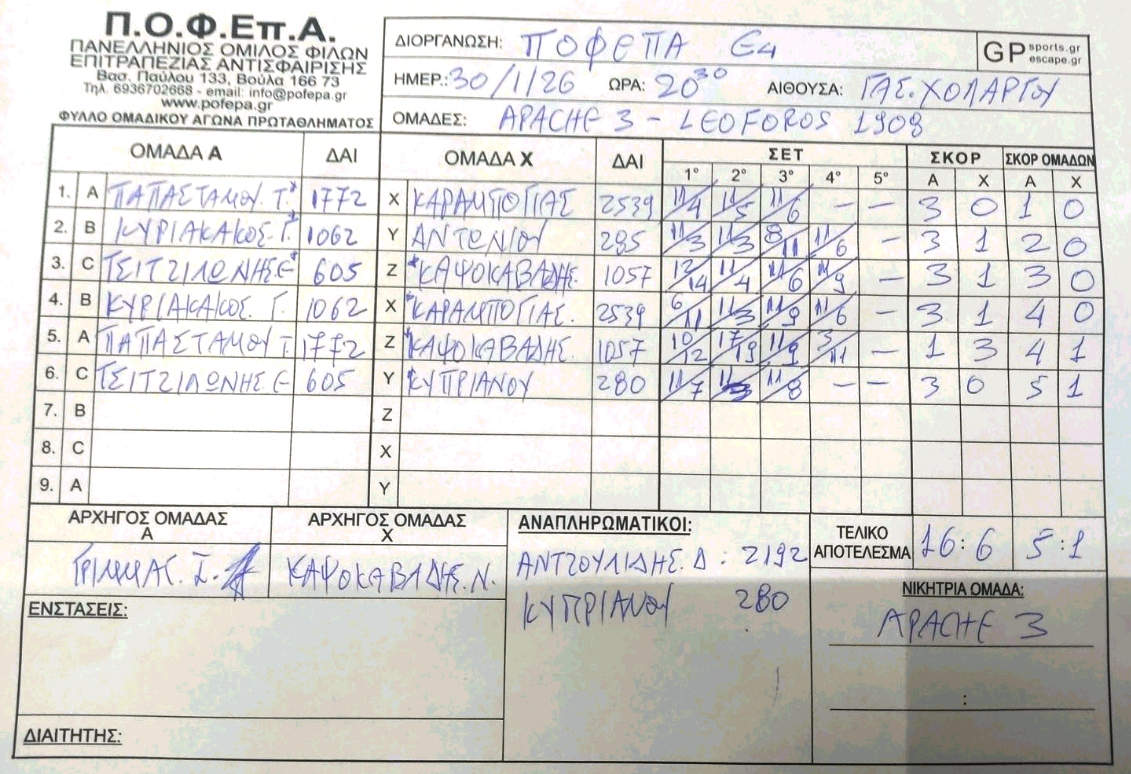 Π.Ο.Φ.Επ.Α.
ΠΑΝΕΛΛΗΝΙΟΣ ΟΜΙΛΟΣ ΦΙΛΩΝ
ΕΠΙΤΡΑΠΕΖΙΑΣ ΑΝΤΙΣΦΑΙΡΙΣΗΣ
Βασ. Παύλου 133, Βούλα 166 73
Τηλ. 6936702668 - email: info@pofepa.gr
www.pofepa.gr
ΦΥΛΛΟ ΟΜΑΔΙΚΟΥ ΑΓΩΝΑ ΠΡΩΤΑΘΛΗΜΑΤΟΣ
ΔΙΟΡΓΑΝΩΣΗ: ΠΟΦΕΠΑ Ε4
GP sports.gr escape.gr
ΗΜΕΡ.: 30/1/26 ΩΡΑ: 20 30 ΑΙΘΟΥΣΑ: ΓΑΣ. ΧΟΛΑΡΓΟΥ
ΟΜΑΔΕΣ: APACHE 3 - LEOFOROS 1908
ΟΜΑΔΑ Α ΔΑΙ ΟΜΑΔΑ Χ ΔΑΙ ΣΕΤ ΣΚΟΡ ΣΚΟΡ ΟΜΑΔΩΝ
1° 2° 3° 4° 5° Α Χ Α Χ
1. Α ΠΑΠΑΣΤΑΜΟΥ. Τ.* 1772 Χ ΚΑΡΑΜΠΟΓΙΑΣ 2539 11/4 11/5 11/6 — — 3 0 1 0
2. Β ΚΥΡΙΑΚΑΚΟΣ. Γ.* 1062 Υ ΑΝΤΩΝΙΟΥ 285 11/3 11/3 8/11 11/6 — 3 1 2 0
3. C ΤΣΙΤΖΙΛΩΝΗΣ Ε* 605 Ζ *ΚΑΨΟΚΑΒΑΔΗΣ 1057 12/14 11/4 11/6 11/9 — 3 1 3 0
4. Β ΚΥΡΙΑΚΑΚΟΣ Γ. 1062 Χ *ΚΑΡΑΜΠΟΓΙΑΣ. 2539 6/11 11/3 11/9 11/6 — 3 1 4 0
5. Α ΠΑΠΑΣΤΑΜΟΥ Τ. 1772 Ζ *ΚΑΨΟΚΑΒΑΔΗΣ 1057 10/12 17/19 11/9 3/11 — 1 3 4 1
6. C ΤΣΙΤΖΙΛΩΝΗΣ Ε 605 Υ *ΚΥΠΡΙΑΝΟΥ 280 11/7 11/3 11/8 — — 3 0 5 1
7. Β Ζ
8. C Χ
9. Α Υ
ΑΡΧΗΓΟΣ ΟΜΑΔΑΣ Α ΑΡΧΗΓΟΣ ΟΜΑΔΑΣ Χ ΑΝΑΠΛΗΡΩΜΑΤΙΚΟΙ: ΤΕΛΙΚΟ ΑΠΟΤΕΛΕΣΜΑ 16:6 5:1
ΚΑΨΟΚΑΒΑΔΗΣ. Ν.
ΑΝΤΖΟΥΛΙΔΗΣ. Δ: 2192
ΚΥΠΡΙΑΝΟΥ 280
ΝΙΚΗΤΡΙΑ ΟΜΑΔΑ:
APACHE 3
:
ΕΝΣΤΑΣΕΙΣ:
ΔΙΑΙΤΗΤΗΣ: